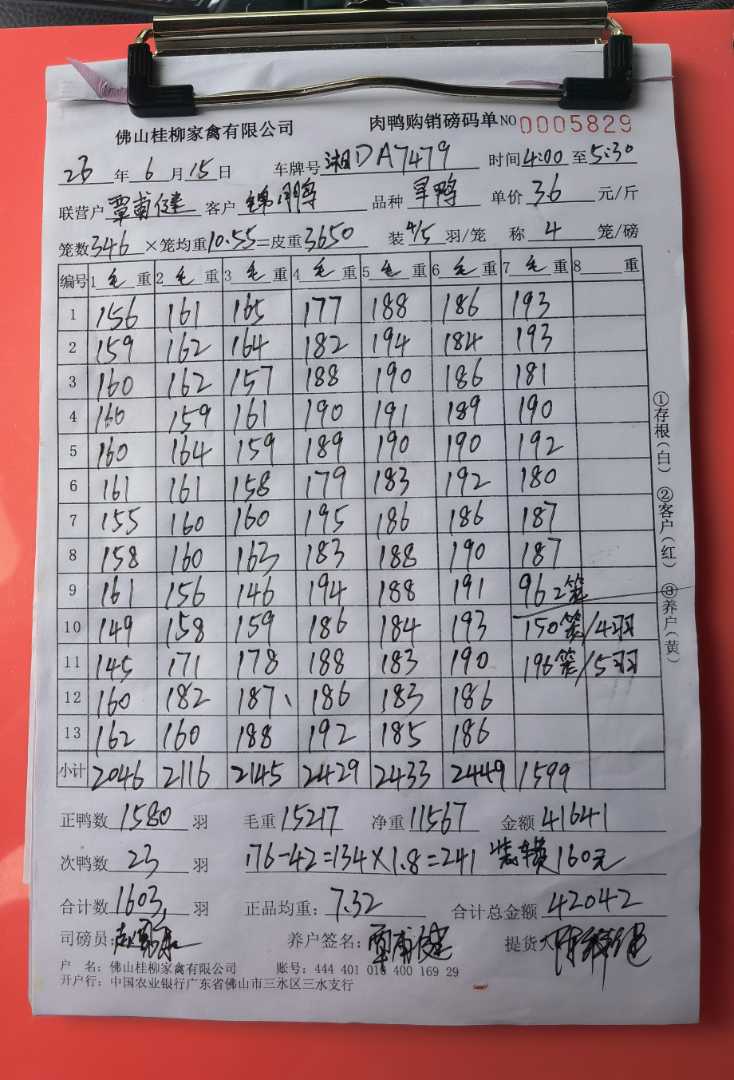 佛山桂柳家禽有限公司 肉鸭购销磅码单 NO 0005829
23年6月15日 车牌号湘DA7479 时间4:00至5:30
联营户覃甫健 客户 品种旱鸭 单价3.6元/斤
笼数346×笼均重10.55=皮重3650 装4/5羽/笼 称4笼/磅
编号 1毛重 2毛重 3毛重 4毛重 5毛重 6毛重 7毛重 8重
1 156 161 165 177 188 186 193
2 159 162 164 182 194 184 193
3 160 162 157 188 190 186 181
4 160 159 161 190 191 189 190
5 160 164 159 189 190 190 192
6 161 161 158 179 183 192 180
7 155 160 160 195 186 186 187
8 158 160 163 183 188 190 187
9 161 156 146 194 188 191 96 2笼
10 149 158 159 186 184 193 150笼/4羽
11 145 171 178 188 183 190 196笼/5羽
12 160 182 187、 186 183 186
13 162 160 188 192 185 186
小计 2046 2116 2145 2429 2433 2449 1599
正鸭数1580羽 毛重15217 净重11567 金额41641
次鸭数23羽 176-42=134×1.8=241 装车费160元
合计数1603羽 正品均重:7.32 合计总金额42042
司磅员: 养户签名:覃甫健 提货人
户 名:佛山桂柳家禽有限公司 账号:444 401 010 400 169 29
开户行:中国农业银行广东省佛山市三水区三水支行
①存根(白) ②客户(红) ③养户(黄)